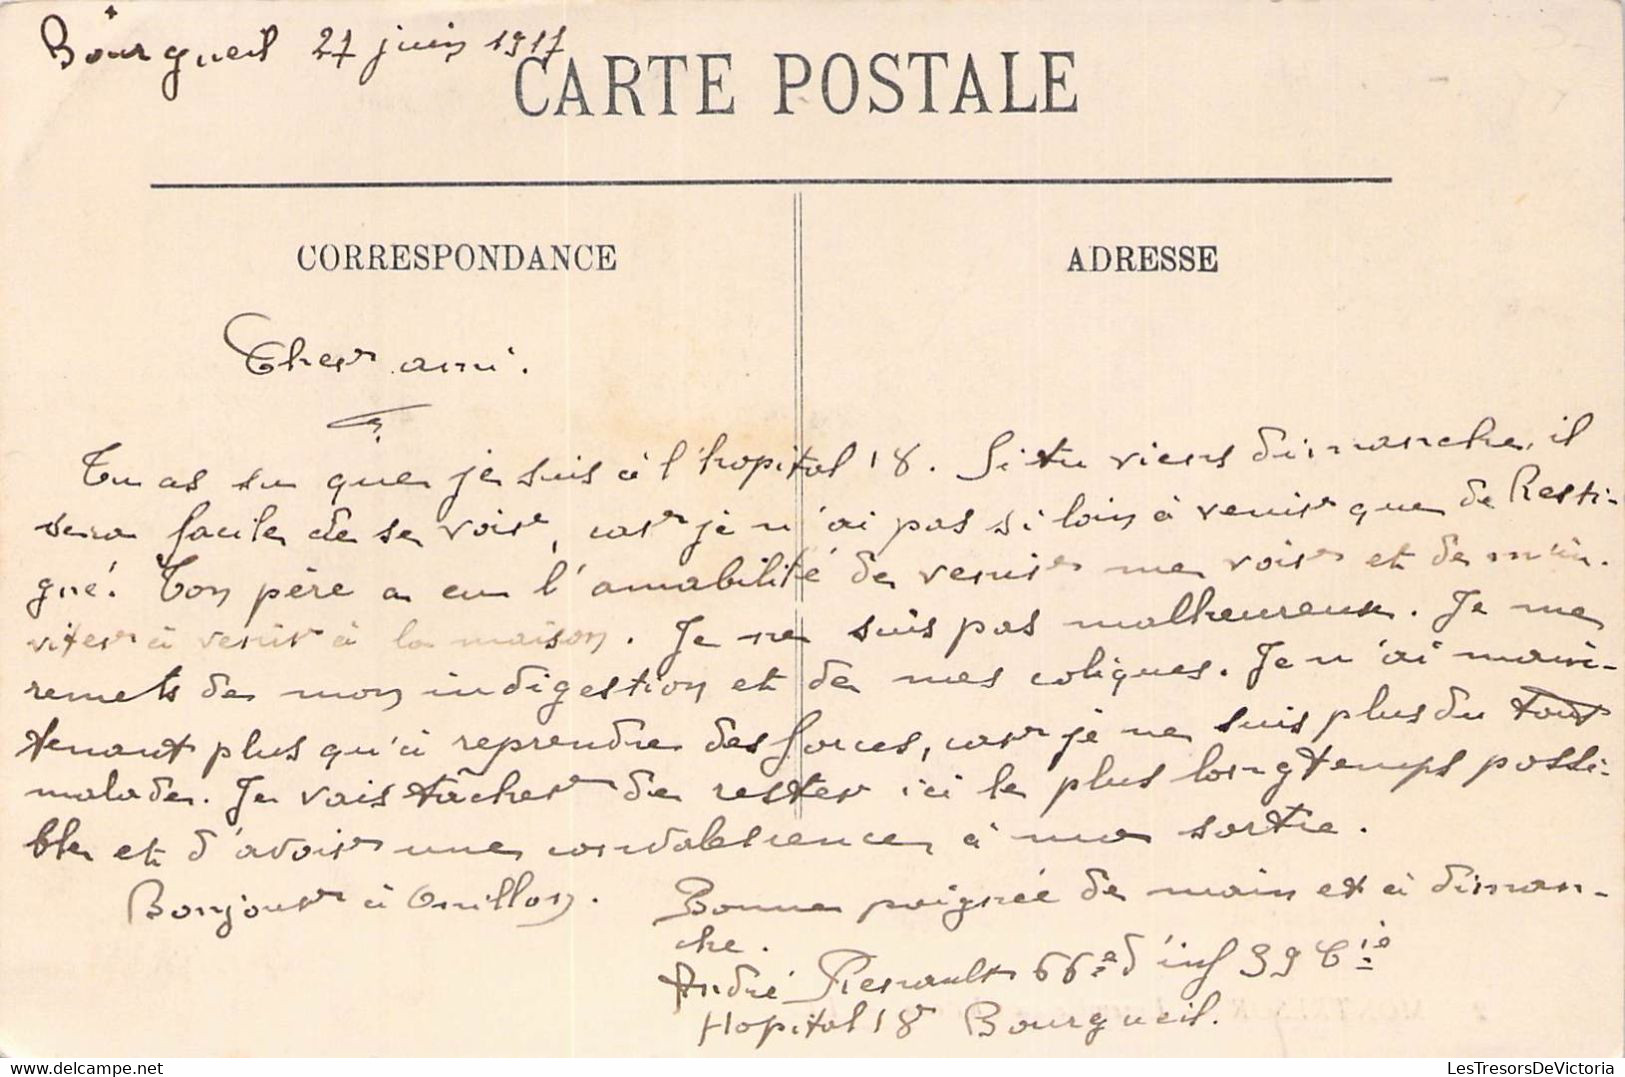 Bourgueil 27 juin 1917
CARTE POSTALE
CORRESPONDANCE
ADRESSE
Cher ami.
Tu as su que je suis à l'hopital 18. Si tu viens dimanche, il
sera facile de se voir, car je n'ai pas si loin à venir que de Resti-
gné. Ton père a eu l'amabilité de venir me voir et de m'in-
viter à venir à la maison. Je ne suis pas malheureux. Je me
remets de mon indigestion et de mes coliques. Je n'ai main-
tenant plus qu'à reprendre des forces, car je ne suis plus du tout
malade. Je vais tâcher de rester ici le plus longtemps possi-
ble et d'avoir une convalescence à ma sortie.
Bonjour à
Bonne poignée de main et à diman-
che.
André Renault 66e d'inf 39 Cie
Hopital 18 Bourgueil.
LesTresorsDeVictoria